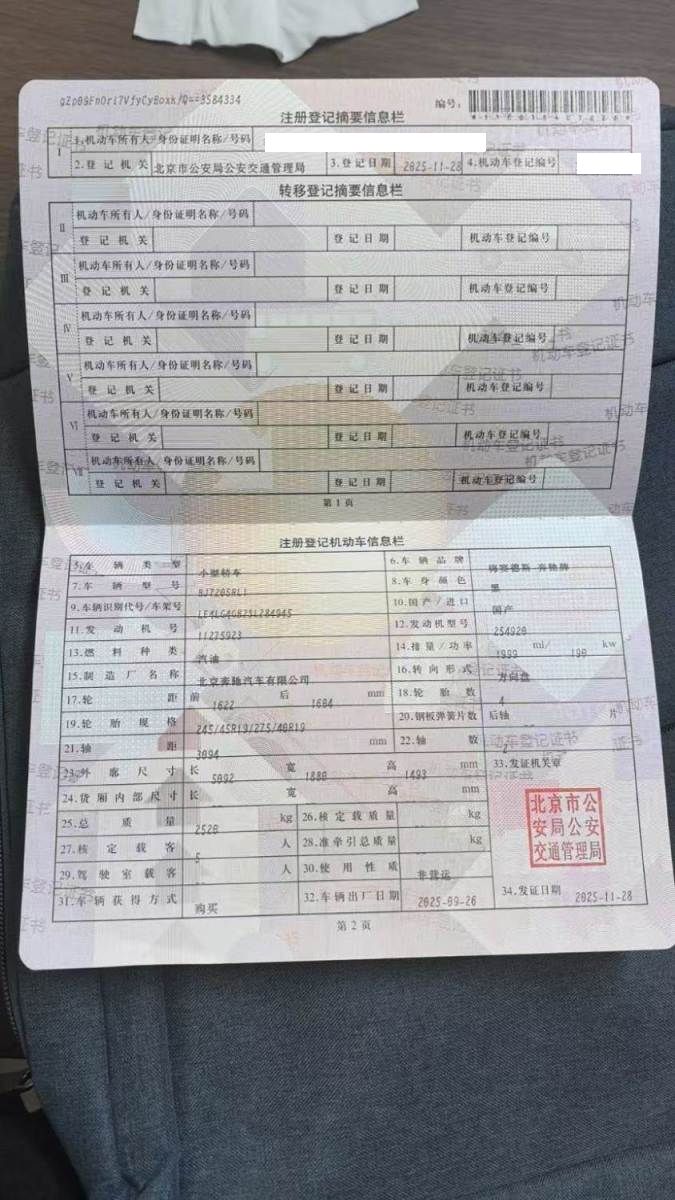 gZp09FnOri7VfyCyBoxk/Q==3584334
编号:
注册登记摘要信息栏
I 1.机动车所有人/身份证明名称/号码
2.登记机关 北京市公安局公安交通管理局 3.登记日期 2025-11-28 4.机动车登记编号
转移登记摘要信息栏
II 机动车所有人/身份证明名称/号码
登记机关 登记日期 机动车登记编号
III 机动车所有人/身份证明名称/号码
登记机关 登记日期 机动车登记编号
IV 机动车所有人/身份证明名称/号码
登记机关 登记日期 机动车登记编号
V 机动车所有人/身份证明名称/号码
登记机关 登记日期 机动车登记编号
VI 机动车所有人/身份证明名称/号码
登记机关 登记日期 机动车登记编号
VII 机动车所有人/身份证明名称/号码
登记机关 登记日期 机动车登记编号
第1页
注册登记机动车信息栏
5.车辆类型 小型轿车 6.车辆品牌 梅赛德斯-奔驰牌
7.车辆型号 8.车身颜色 黑
9.车辆识别代号/车架号 10.国产/进口 国产
11.发动机号 11275923 12.发动机型号 254920
13.燃料种类 汽油 14.排量/功率 1999 ml/ kw
15.制造厂名称 北京奔驰汽车有限公司 16.转向形式 方向盘
17.轮距 前 1622 后 1604 mm 18.轮胎数 4
19.轮胎规格 245/45R19/275/40R19 20.钢板弹簧片数 后轴 片
21.轴距 3094 mm 22.轴数 2
23.外廓尺寸 长 5092 宽 1880 高 1493 mm 33.发证机关章
24.货厢内部尺寸 长 宽 高 mm
25.总质量 2520 kg 26.核定载质量 kg
27.核定载客 5 人 28.准牵引总质量 kg
29.驾驶室载客 人 30.使用性质 非营运
31.车辆获得方式 购买 32.车辆出厂日期 2025-09-26 34.发证日期 2025-11-28
北京市公
安局公安
交通管理局
第2页